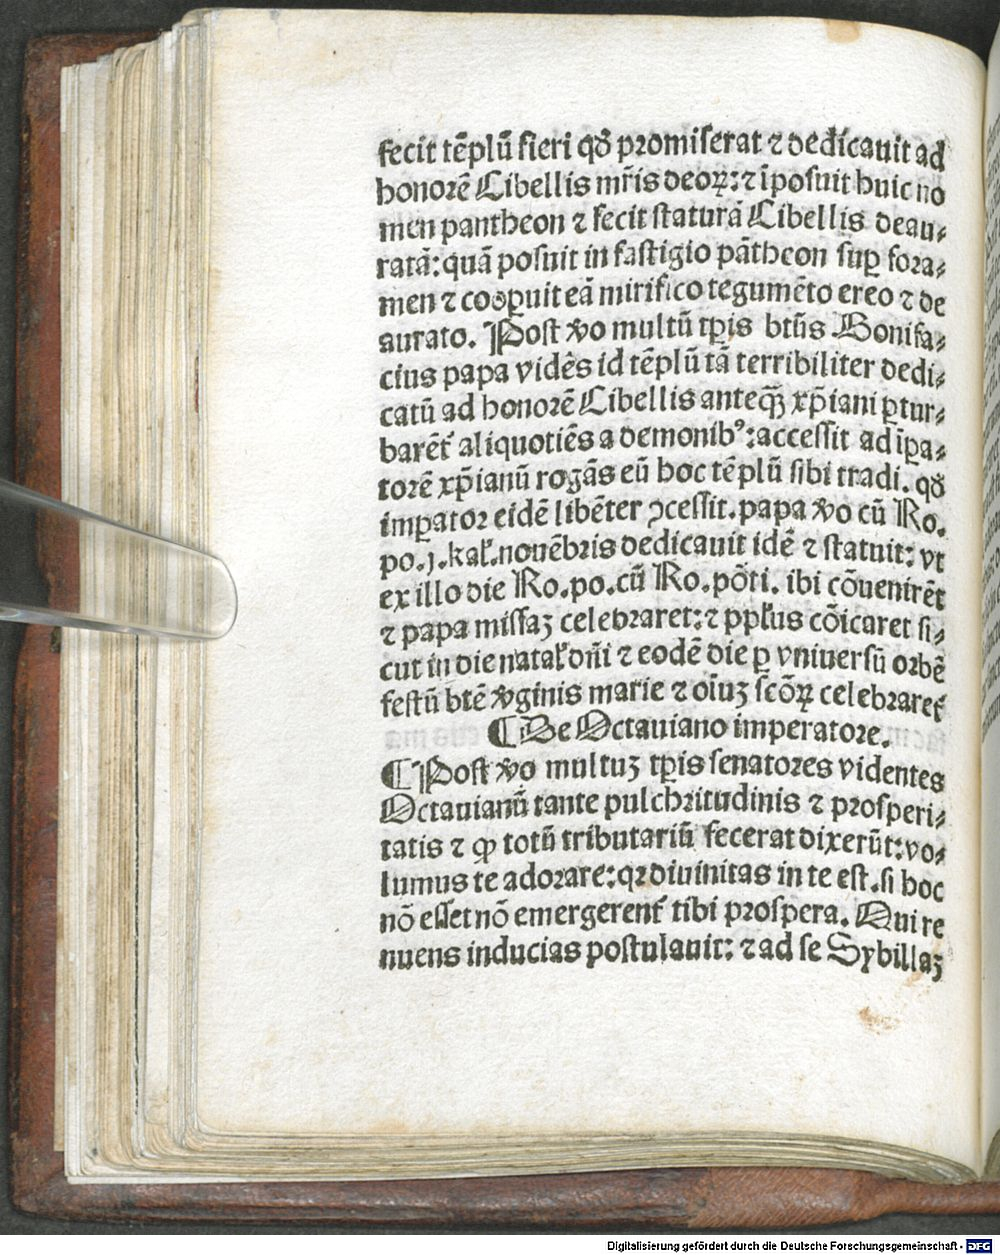 fecit tēplū fieri qđ promiserat ⁊ dedicauit ad
honorē Cibellis mr̄is deoꝝ: ⁊ īposuit huic no
men pantheon ⁊ fecit staturā Cibellis deau⸗
ratā: quā posuit in fastigio pātheon suꝑ fora⸗
men ⁊ cooꝑuit eā mirifico tegumēto ereo ⁊ de
aurato. Post ꝟo multū tꝑis btūs Bonifa⸗
cius papa vidēs id tēplū tā terribiliter dedi⸗
catū ad honorē Cibellis anteq̄ȝ xp̄iani ꝑtur⸗
barēt᷑ aliquotiēs a demonibꝰ: accessit ad īꝑa⸗
torē xp̄ianū rogās eū hoc tēplū sibi tradi. qđ
imꝑator eidē libēter ꝯcessit. papa ꝟo cū Ro.
po. j. kal̓. nouēbris dedicauit idē ⁊ statuit: vt
ex illo die Ro. po. cū Ro. pōti. ibi cōuenirēt
⁊ papa missaȝ celebraret: ⁊ ppl̓us cōicaret si⸗
cut in die natal̓ dn̄i ⁊ eodē die ꝑ vniuersū orbē
festū btē ꝟginis marie ⁊ oīuȝ scōꝝ celebraret᷑
¶ De Octauiano imperatore.
¶ Post ꝟo multuȝ tꝑis senatores videntes
Octauianū tante pulchritudinis ⁊ prosperi⸗
tatis ⁊ ꝙ totū tributariū fecerat dixerūt: vo⸗
lumus te adorare: qꝛ diuinitas in te est. si hoc
nō esset nō emergerent᷑ tibi prospera. Qui re
nuens inducias postulauit: ⁊ ad se Sybillaȝ
Digitalisierung gefördert durch die Deutsche Forschungsgemeinschaft - DFG